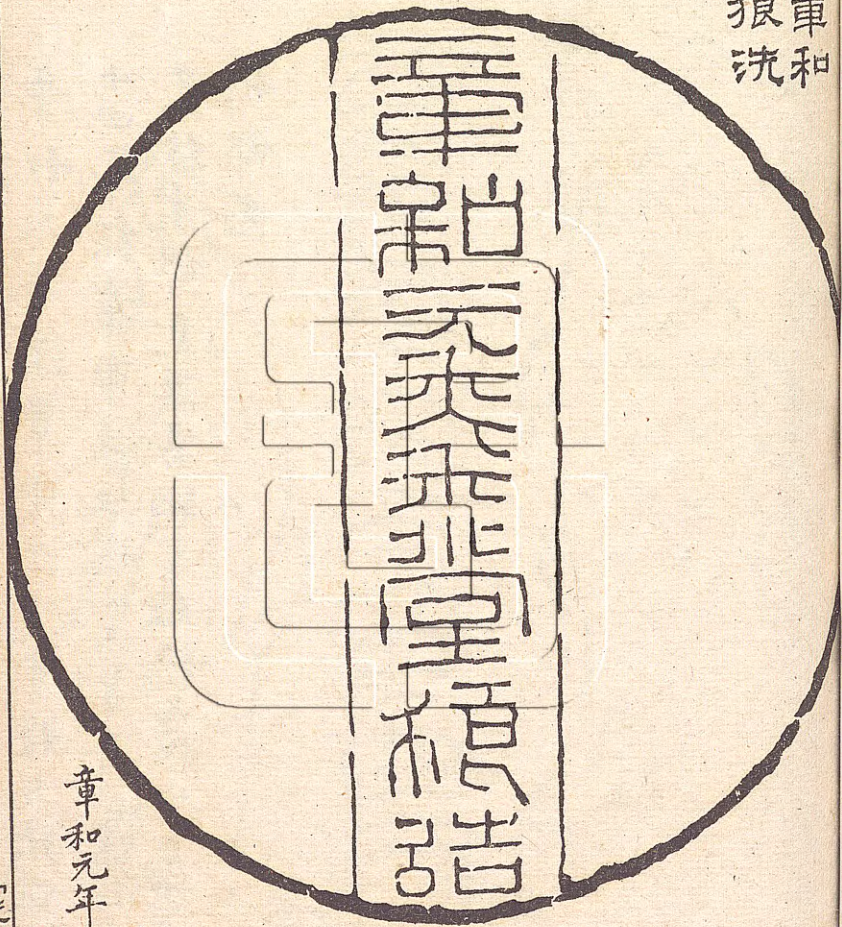 章和
狼洗
章和元年堂狼造
章和元年